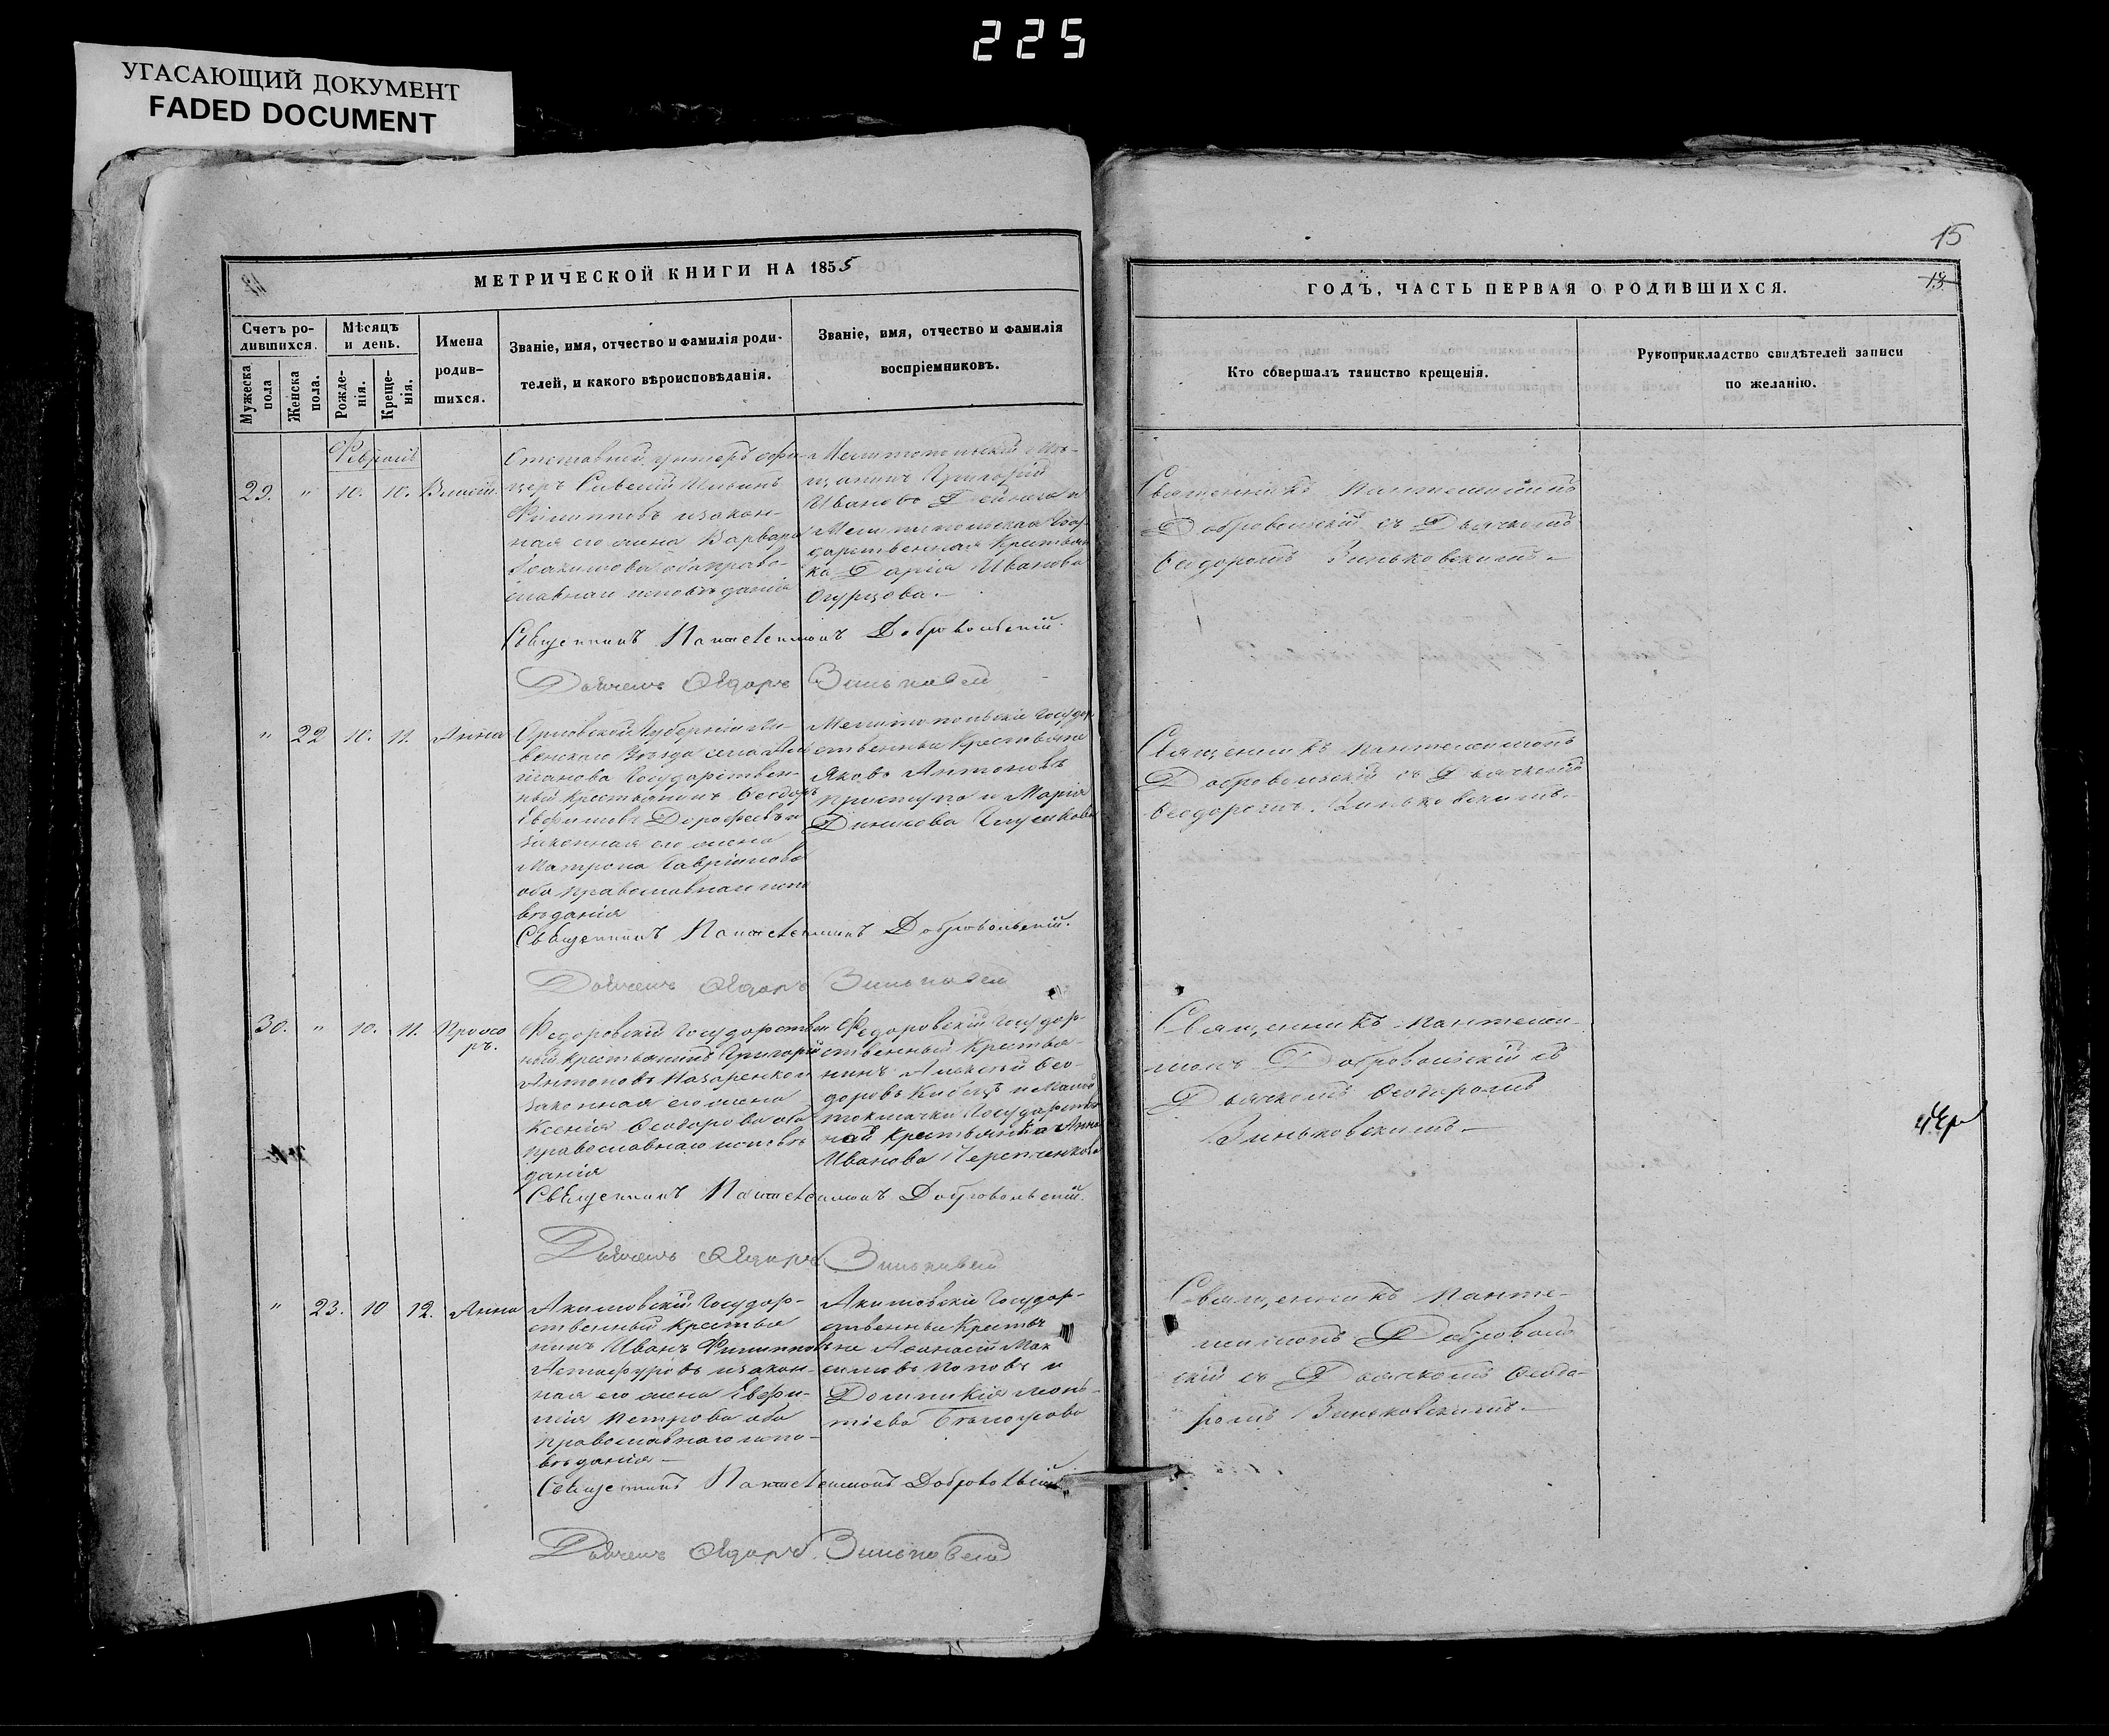 225
УГАСАЮЩИЙ ДОКУМЕНТ
FADED DOCUMENT
МЕТРИЧЕСКОЙ КНИГИ НА 1855
Счетъ ро-
дившихся.
Мужеска пола
Женска пола.
Мѣсяцъ
и день.
Рожде-
нія.
Креще-
нія.
Имена
родив-
шихся.
Званіе, имя, отчество и фамилія роди-
телей, и какого вѣроисповѣданія.
Званіе, имя, отчество и фамилія
воспріемниковъ.
Февраль
29. " 10. 10. Власій.
Отставный унтеръ офи-
церъ Савелій Ильинъ
Филипповъ и закон-
ная его жена Варвара
Іоакимова оба право-
славнаго исповѣданія
Мелитопольскій мѣ-
щанинъ Григорій
Ивановъ
Мелитопольская Госу-
дарственная Крестьян
ка Дарія Иванова
Огурцова.
Священникъ Пантелеимонъ Добровольскій.
Дьячекъ Ѳедоръ Зиньковскій
" 22 10. 11. Анна
Орловской Губерніи Ли-
венскаго Уѣзда села
Государствен-
ный крестьянинъ Ѳеодоръ
Евфимовъ Дорофеевъ и
законная его жена
Матрона Гавріилова
оба православнаго испо
вѣданія
Мелитопольскіе Государ
ственные Крестьяне
Яковъ Антоновъ
Приступа и Марія
Данилова
Священникъ Пантелеимонъ Добровольскій.
Дьячекъ Ѳедоръ Зиньковскій
30. " 10. 11. Прохо
ръ.
Федоровскій Государствен
ный крестьянинъ Григорій
Антоновъ Назаренко и
законная его жена
Ксенія Ѳеодорова оба
православнаго исповѣ
данія
Федоровскій Государ-
ственный Крестья-
нинъ Алексѣй Ѳео-
доровъ Кибецъ и
токмачки Государствен
ная Крестьянка Анна
Иванова Черепченкова
Священникъ Пантелеимонъ Добровольскій.
Дьячекъ Ѳедоръ Зиньковскій
" 23. 10 12. Анна
Акимовскій Государ-
ственный Крестья
нинъ Иванъ Филипповъ
и закон-
ная его жена Евфи-
мія Петрова оба
православнаго испо-
вѣданія
Акимовскіе Государ-
ственные Крестья
не Аѳанасій Мак
симовъ Поповъ и
Домникія
Священникъ Пантелеимонъ Добровольскій
Дьячекъ Ѳедоръ Зиньковскій
15
13.
ГОДЪ, ЧАСТЬ ПЕРВАЯ О РОДИВШИХСЯ.
Кто совершалъ таинство крещенія.
Рукоприкладство свидѣтелей записи
по желанію.
Священникъ Пантелеимонъ
Добровольскій съ Дьячкомъ
Ѳеодоромъ Зиньковскимъ.
Священникъ Пантелеимонъ
Добровольскій съ Дьячкомъ
Ѳеодоромъ Зиньковскимъ.
Священникъ Пантелеи-
монъ Добровольскій съ
Дьячкомъ Ѳеодоромъ
Зиньковскимъ.
Священникъ Панте-
леимонъ Добровол
скій съ Дьячкомъ Ѳеодо-
ромъ Зиньковскимъ.